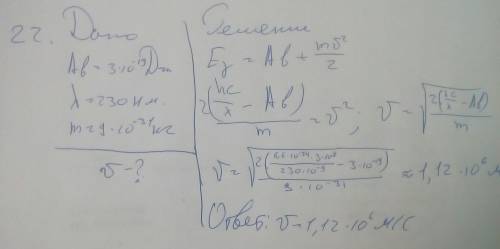 22. Дано
Ав = 3·10⁻¹⁹Дж
λ = 230 нм.
m = 9·10⁻³¹ кг
v - ?
Решение
Eф = Ав + mv²/2
2(hc/λ - Ав)/m = v²; v = √(2(hc/λ - Ав)/m)
v = √(2(6.6·10⁻³⁴·3·10⁸/230·10⁻⁹ - 3·10⁻¹⁹)/9·10⁻³¹) ≈ 1,12·10⁶ м
Ответ: v = 1,12·10⁶ м/с